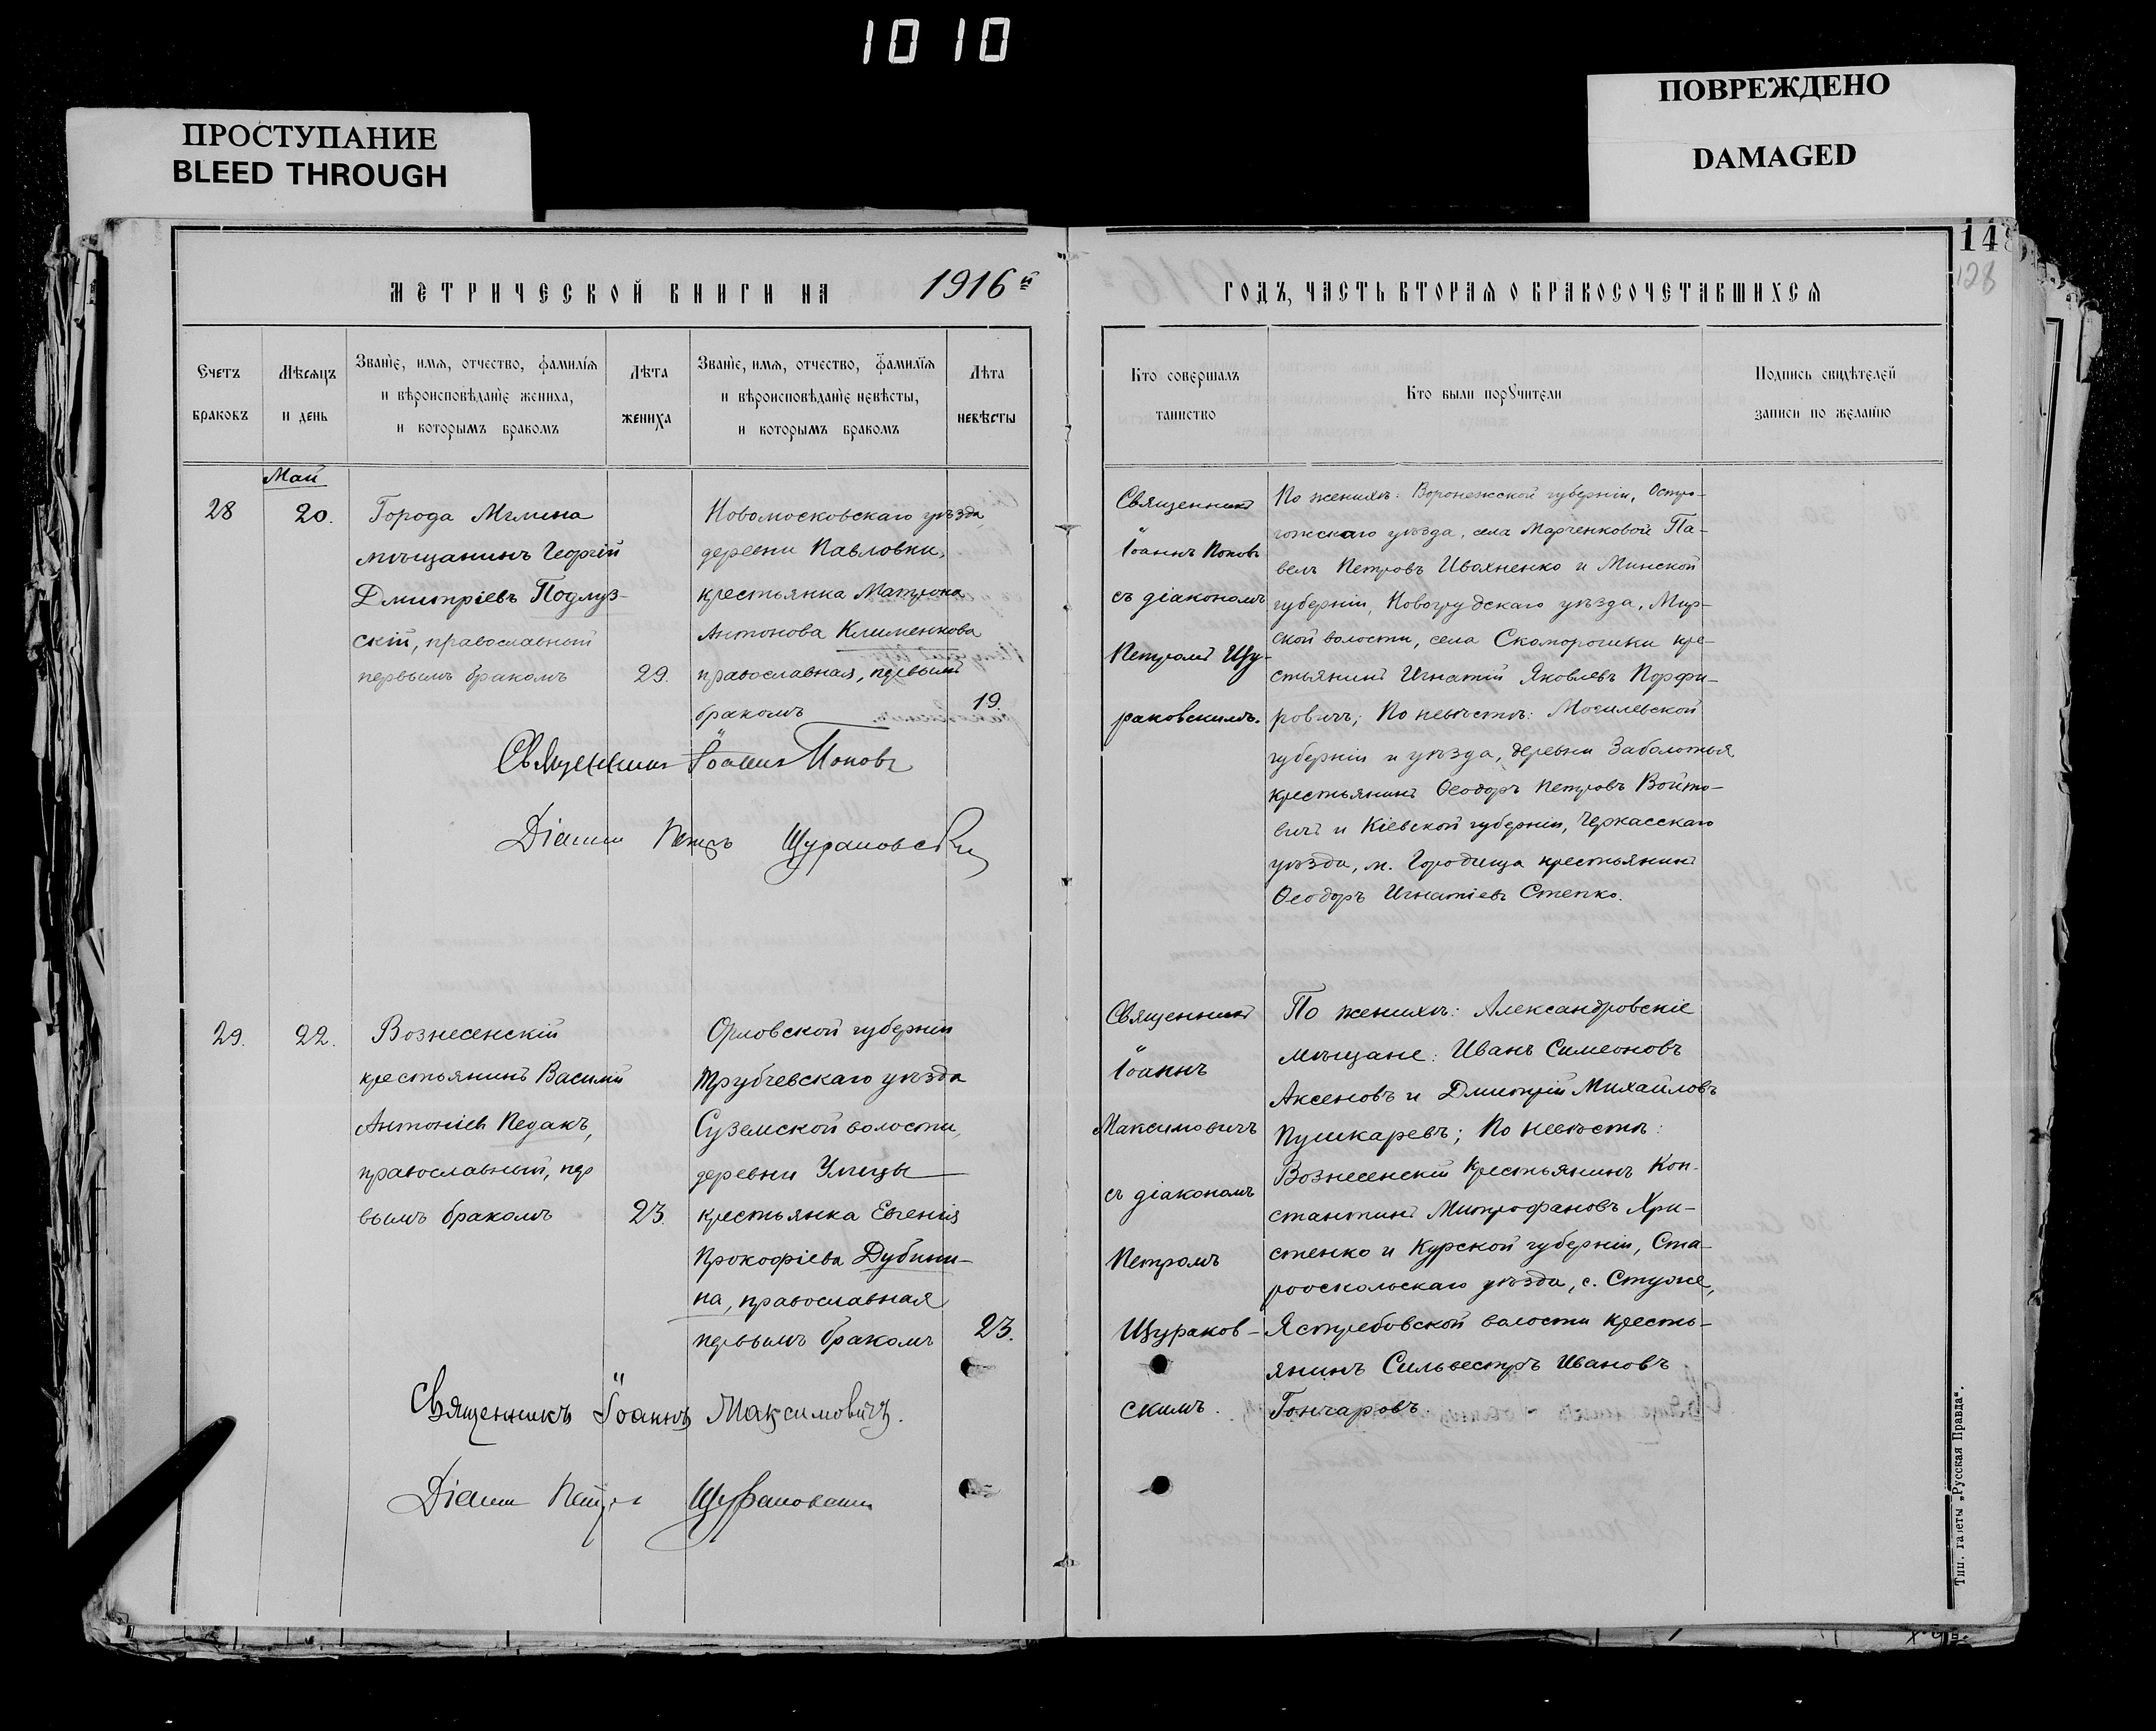 1010
ПРОСТУПАНИЕ
BLEED THROUGH
ПОВРЕЖДЕНО
DAMAGED
148
128
МЕТРИЧЕСКОЙ КНИГИ НА 1916й
Счетъ браковъ
Мѣсяцъ и день
Званіе, имя, отчество, фамилія
и вѣроисповѣданіе жениха,
и которымъ бракомъ
Лѣта жениха
Званіе, имя, отчество, фамилія
и вѣроисповѣданіе невѣсты,
и которымъ бракомъ
Лѣта невѣсты
Май
28
20.
Города Мглина
мѣщанинъ Георгій
Дмитріевъ Подлуз-
скій, православный
первымъ бракомъ
29.
Новомосковскаго уѣзда
деревни Павловки,
крестьянка Матрона
Антонова Клименкова
православная, первымъ
бракомъ
19.
Священникъ Іоаннъ Поповъ
Діаконъ Петръ Щураковскій
29.
22.
Вознесенскій
крестьянинъ Василій
Антоніевъ Педакъ,
православный, пер
вымъ бракомъ
23.
Орловской губерніи
Трубчевскаго уѣзда
Суземской волости,
деревни Улицы
крестьянка Евгенія
Прокофіева Дубини-
на, православная
первымъ бракомъ
23.
Священникъ Іоаннъ Максимовичъ.
Діаконъ Петръ Щураковскій
ГОДЪ, ЧАСТЬ ВТОРАЯ О БРАКОСОЧЕТАВШИХСЯ
Кто совершалъ
таинство
Кто были поручители
Подпись свидѣтелей
записи по желанію
Священникъ
Іоаннъ Поповъ
съ діакономъ
Петромъ Щу-
раковскимъ.
По женихѣ: Воронежской губерніи, Остро-
гожскаго уѣзда, села Марченковой Па-
велъ Петровъ Ивахненко и Минской
губерніи, Новогрудскаго уѣзда, Мир-
ской волости, села Скоморошки кре-
стьянинъ Игнатій Яковлевъ Порфи-
ровичъ; По невѣстѣ: Могилевской
губерніи и уѣзда, деревни Заболотья
крестьянинъ Ѳеодоръ Петровъ Войто-
вичъ и Кіевской губерніи, Черкасскаго
уѣзда, м. Городища крестьянинъ
Ѳеодоръ Игнатіевъ Степко.
Священникъ
Іоаннъ
Максимовичъ
съ діакономъ
Петромъ
Щураков-
скимъ.
По женихѣ: Александровскіе
мѣщане: Иванъ Симеоновъ
Аксеновъ и Дмитрій Михайловъ
Пушкаревъ; По невѣстѣ:
Вознесенскій крестьянинъ Кон-
стантинъ Митрофановъ Хри-
стенко и Курской губерніи, Ста-
рооскольскаго уѣзда, с. Стужня,
Ястребовской волости кресть-
янинъ Сильвестръ Ивановъ
Гончаровъ.
Тип. газеты „Русская Правда“.